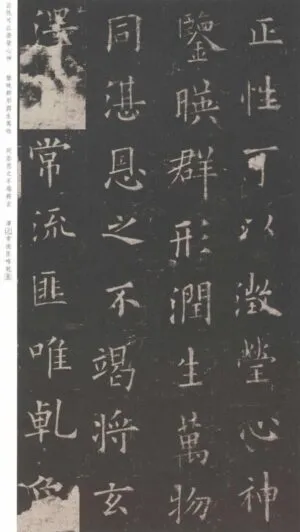 正性可以澂瑩心神
鑒暎群形潤生萬物
同湛恩之不竭將玄
澤常流匪唯乹
正性可以澂瑩心神 鑒暎群形潤生萬物 同湛恩之不竭將玄 澤之常流匪唯乾象